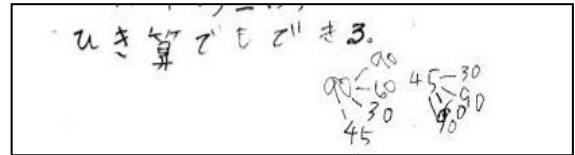 ひき算でもできる。
90
90 60
30
45
45 30
90
60